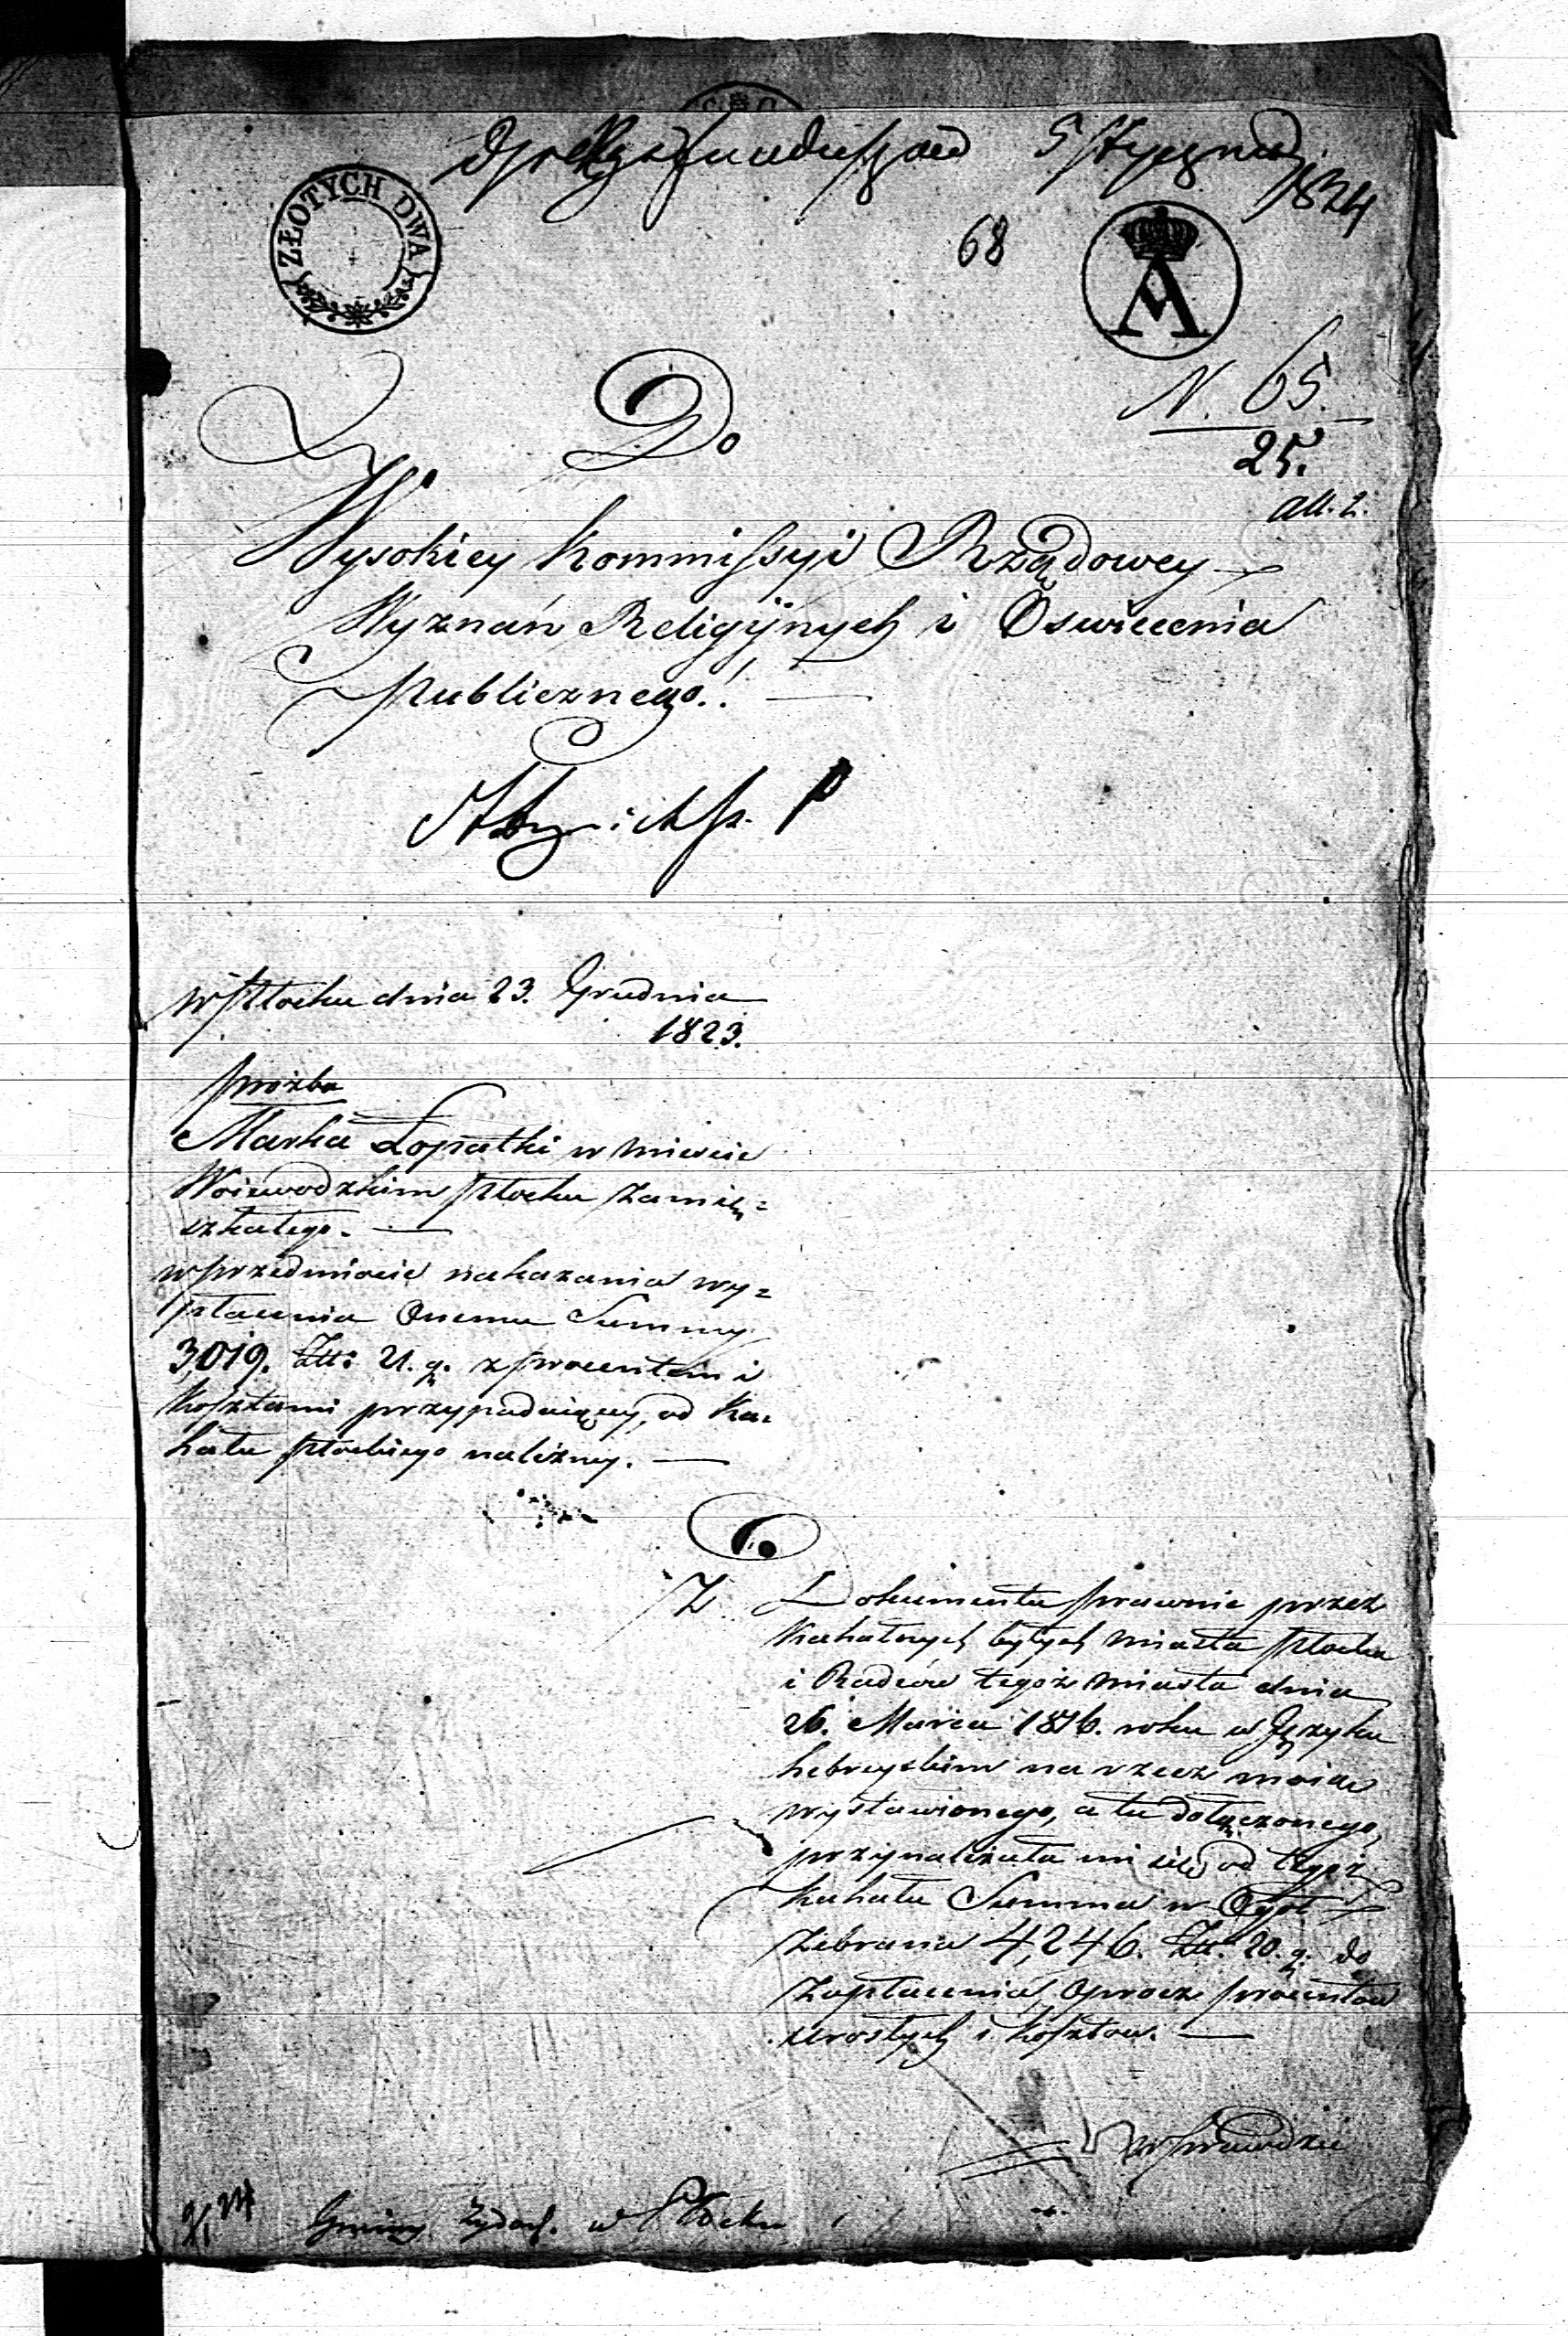 5 Stycznia
1824
ZŁOTYCH DWA
68
A
N. 65.
25.
all. 2.
Do
Wysokiey Kommissyi Rządowey
Wyznań Religijnych i Oswiecenia
Publicznego!
w Płocku dnia 23. Grudnia
1823.
prozba
Marka Łopatki w miescie
Woiewodzkim Płocku zamię=
szkałego.
w przedmiocie nakazania wy=
płacenia Onemu Summy
3,019. Złł: 21. g. z procentem i
kosztami przypadaiącey, od Ka=
hału Płockiego należney.
Z Dokumentu prawnie przez
Kahalnych byłych miasta Płocka
i Radców tegoż miasta dnia
26. Marca 1816. roku w Języku
hebreyskim na rzecz moia
wystawionego, a tu dołączonego,
przynależała mi się od tegoż
Kahału Summa w Ogół
zebrana 4,246. Złł. 20. g. do
zapłacenia, oprocz procentów
urosłych i kosztow.
wprawdzie
Gminy Żydows. w Płocku